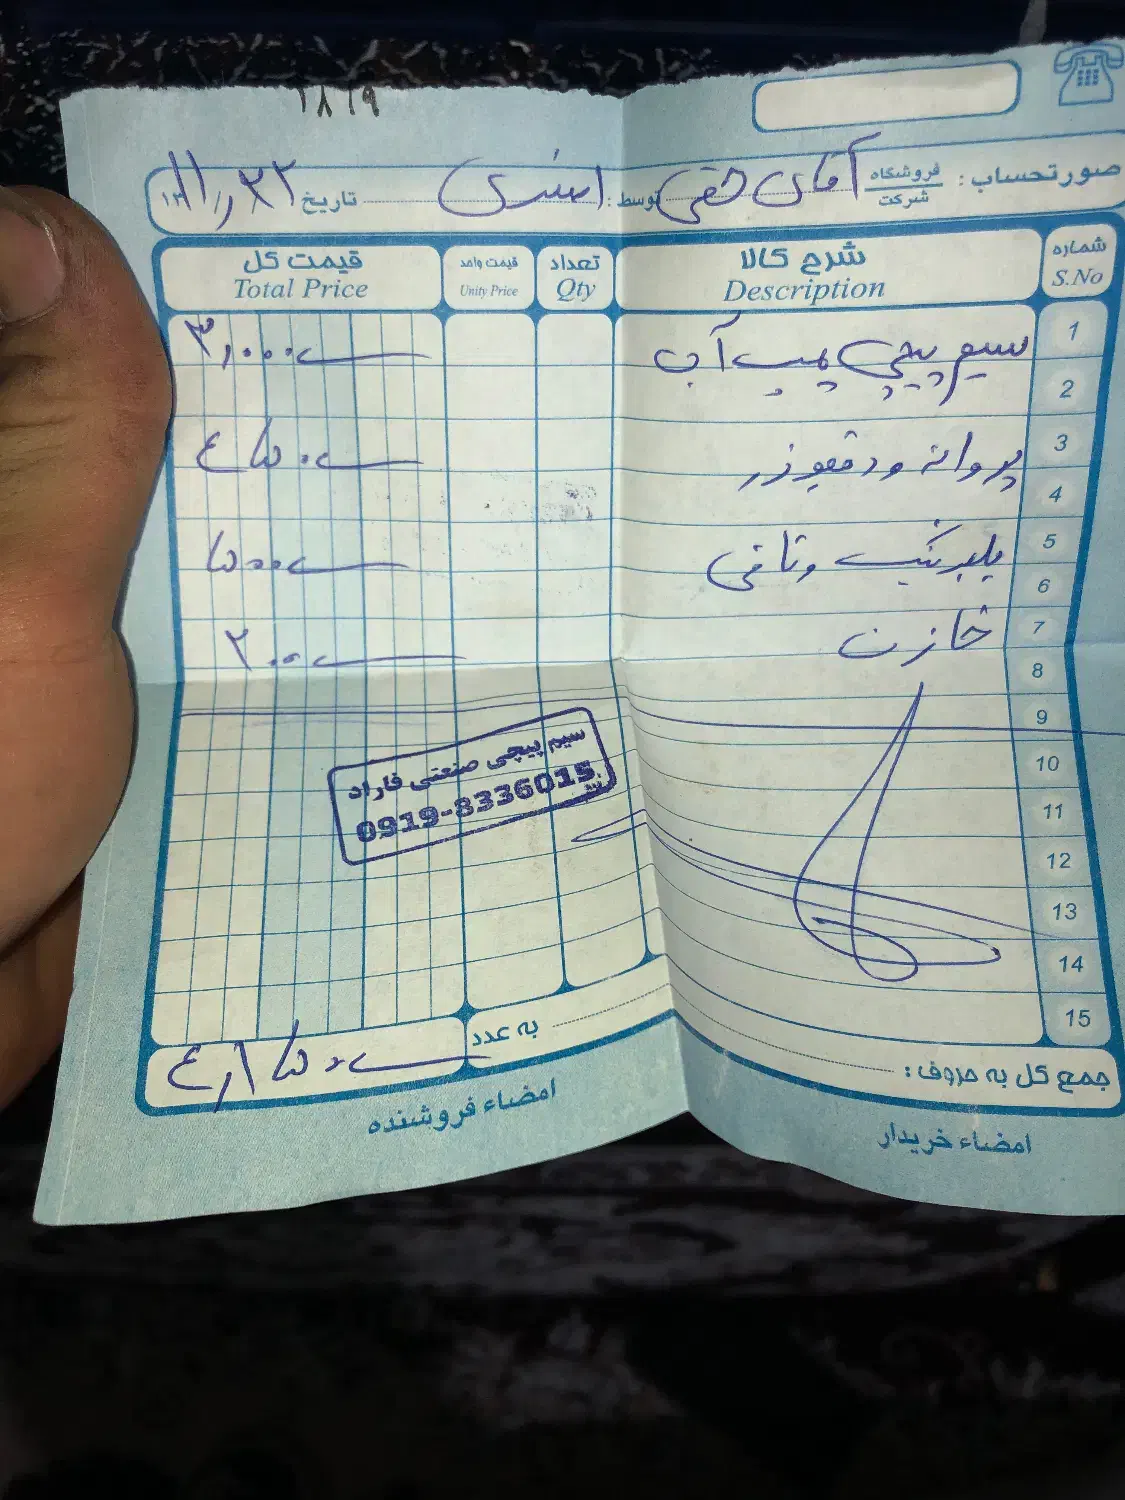 ۱۸۱۹
صورتحساب: فروشگاه شرکت آقای حقی توسط: تاریخ
شماره شرح کالا تعداد قیمت واحد قیمت کل
S.No Description Qty Unity Price Total Price
1 سیم پیچی پمپ آب ۳,۰۰۰
2
3 پروانه و درقپوزر ۴۵۰
4
5 بلبرینگ و تافی ۵۰۰
6
7 خازن ۲۰۰
8
9
10
11
12
13
14
15
سیم پیچی صنعتی فاراد
0919-3336015
جمع کل به حروف: به عدد ۴,۱۵۰
امضاء خریدار امضاء فروشنده